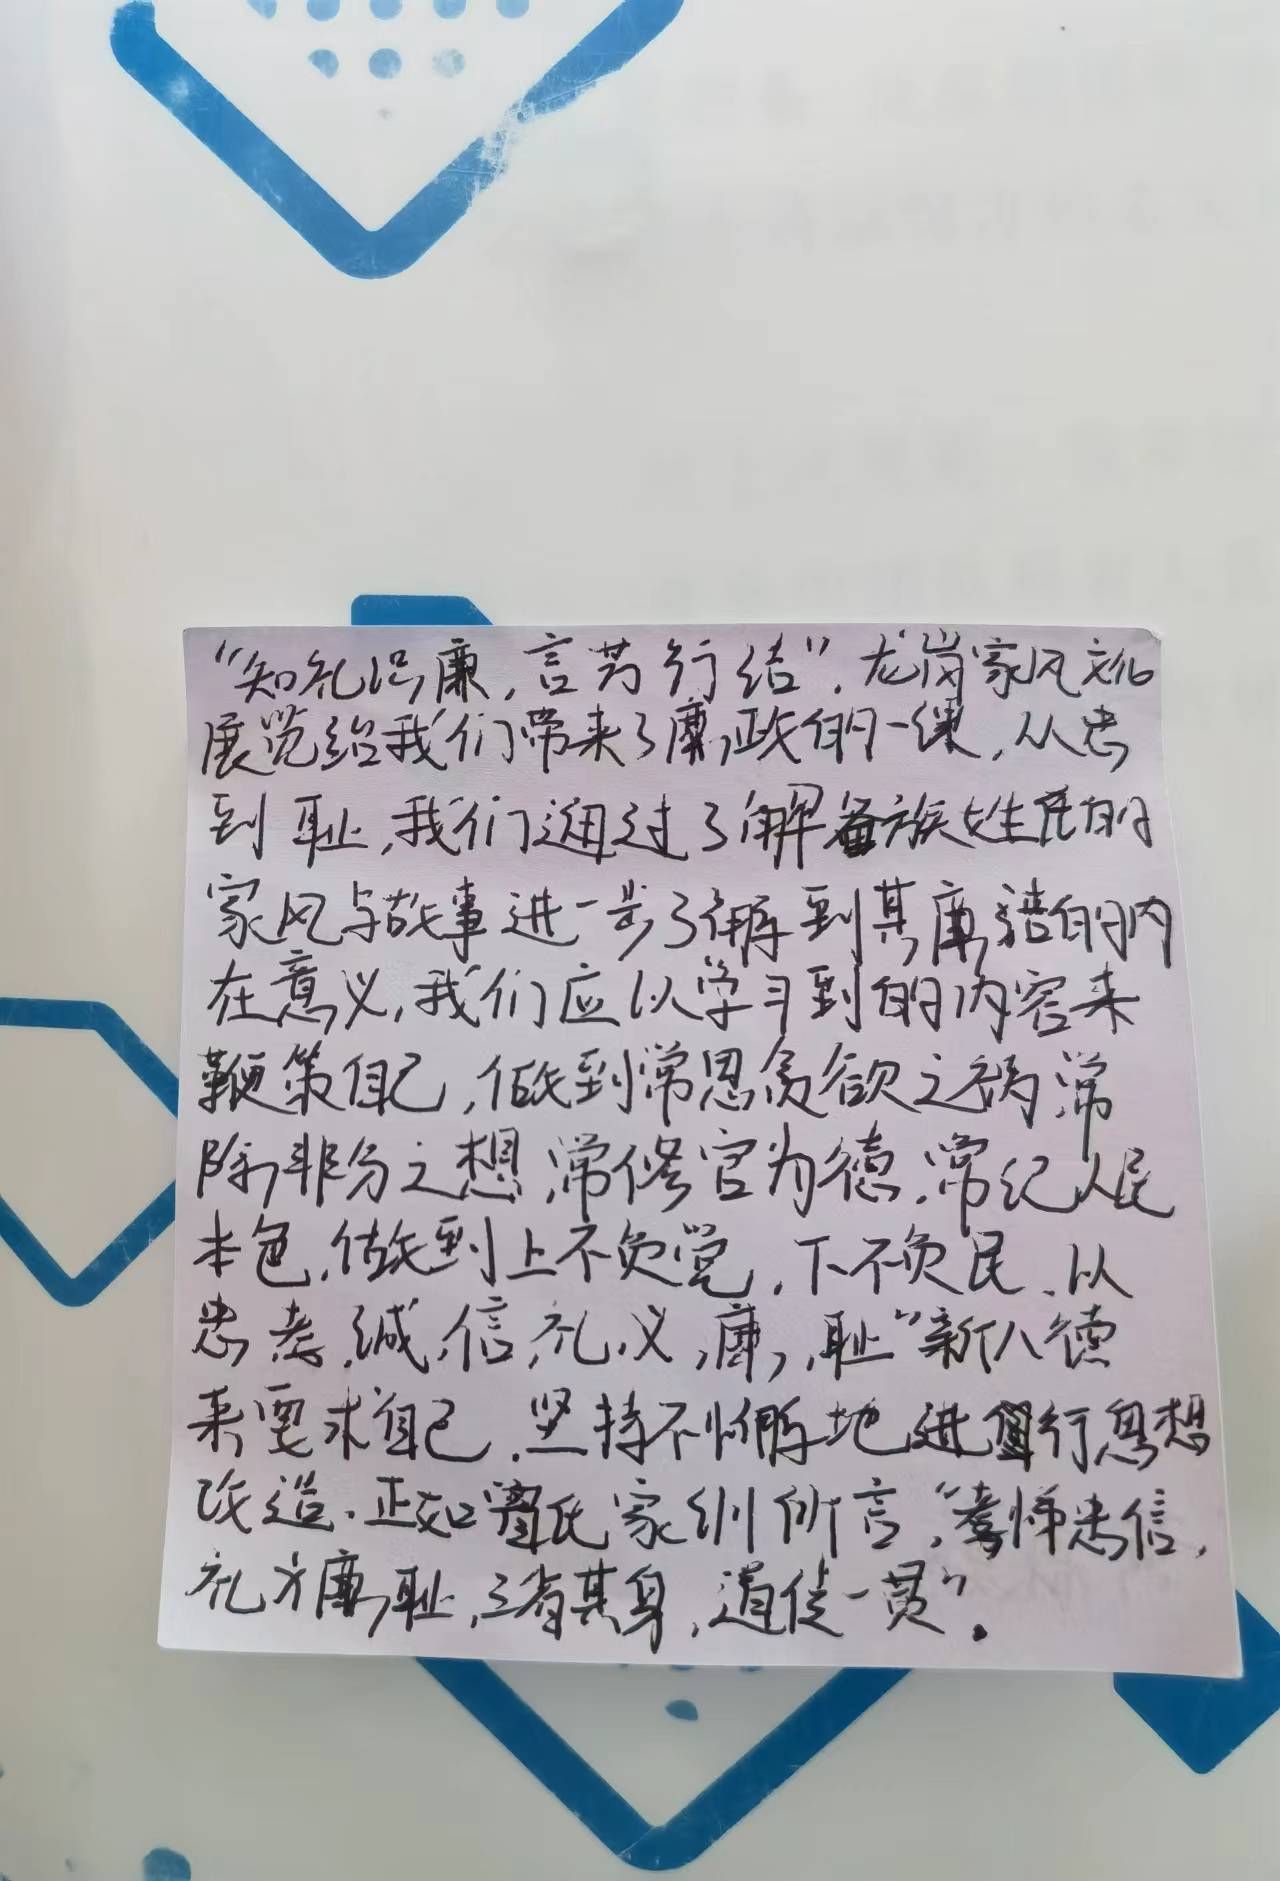 “知礼识廉,言芳行洁”.龙岗家风文化
展览给我们带来了廉政的一课,从忠
到耻,我们通过了解各族姓氏的
家风与故事进一步了解到其廉洁的内
在意义,我们应以学习到的内容来
鞭策自己,做到常思贪欲之祸常
除非分之想,常修官为德,常纪人民
本色,做到上不负党,下不负民,以
忠,孝,诚,信,礼,义,廉,耻“新八德
来要求自己,坚持不懈地进行思想
改造.正如 氏家训所言,“孝悌忠信,
礼义廉耻,三省其身,道徒一贯”.